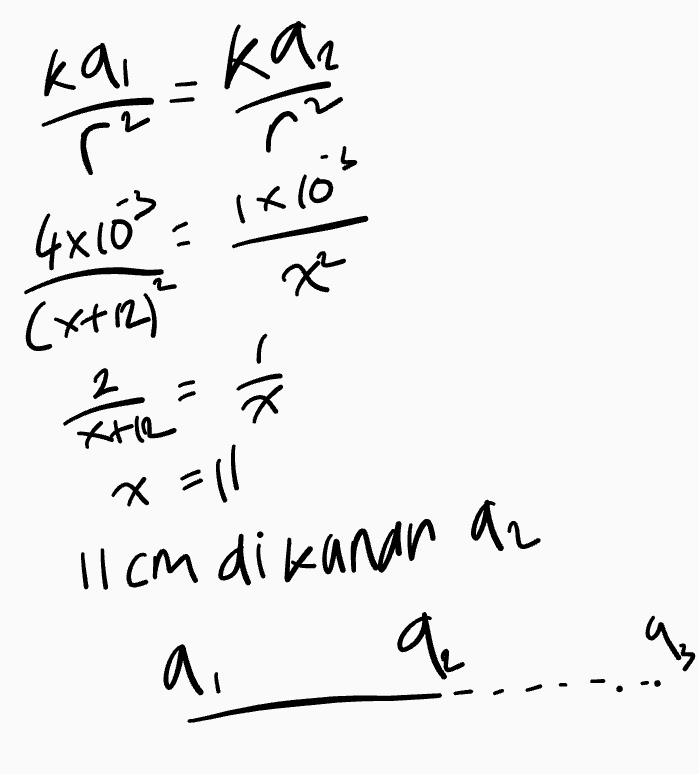 ka₁/r² = ka₂/r²
4×10⁻³/(x+12)² = 1×10⁻³/x²
2/x+12 = 1/x
x = 11
11 cm dikanan a₂
a₁ a₂ a₃